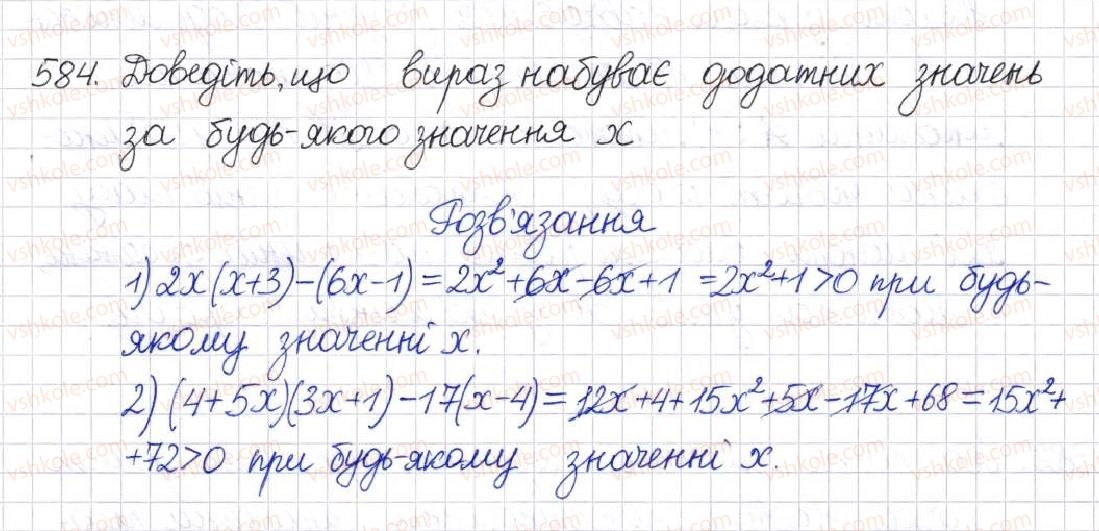 584. Доведіть, що вираз набуває додатних значень
за будь-якого значення x
Розв'язання
1) 2x(x+3)-(6x-1)=2x²+6x-6x+1=2x²+1>0 при будь-
якому значенні x.
2) (4+5x)(3x+1)-17(x-4)=12x+4+15x²+5x-17x+68=15x²+
+72>0 при будь-якому значенні x.